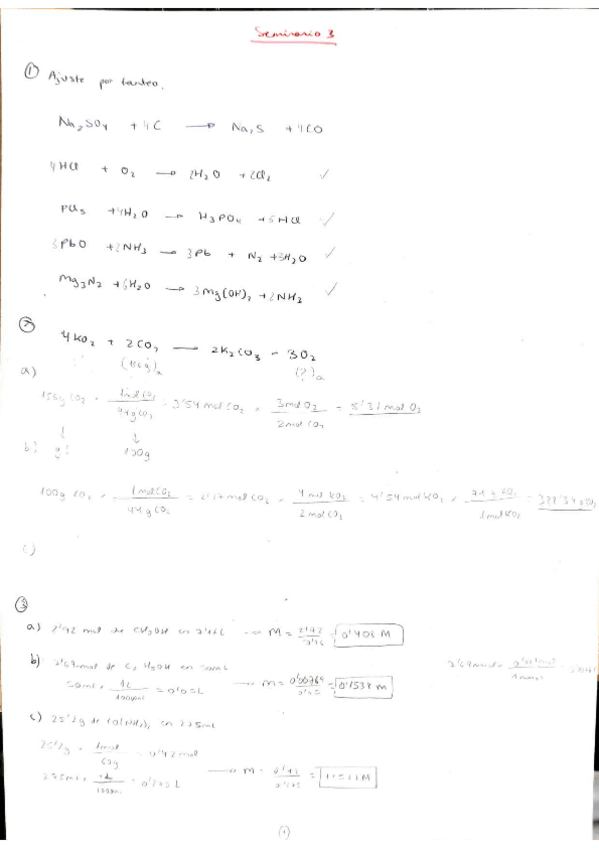 Seminario 3
① Ajuste por tanteo.
Na₂SO₄ + 4C → Na₂S + 4CO
4HCl + O₂ → 2H₂O + 2Cl₂ ✓
PCl₅ + 4H₂O → H₃PO₄ + 5HCl ✓
3PbO + 2NH₃ → 3Pb + N₂ + 3H₂O ✓
Mg₃N₂ + 6H₂O → 3Mg(OH)₂ + 2NH₃ ✓
②
4KO₂ + 2CO₂ — 2K₂CO₃ - 3O₂
a) (?)
156g CO₂ · 1mol CO₂ / 44g CO₂ = 3'54 mol CO₂ × 3mol O₂ / 2mol CO₂ = 5'31 mol O₂
b) g? 100g
100g CO₂ × 1molCO₂ / 44g CO₂ = 2'27mol CO₂ × 4 mol KO₂ / 2 mol CO₂ = 4'54 mol KO₂ × 71 g KO₂ / 1mol KO₂
c)
③
a) mol de CH₃OH en → M = = 0'408 M
b) mol de C₂H₅OH en 50mL
50mL × 1L / 1000mL = 0'05L → M = 0'00769 / 0'05 = 0'1538 M
c) 25'2g de CO(NH₂)₂ en 275mL
25'2g · 1mol / 60g = 0'42 mol
275mL × 1L / 1000mL = 0'275 L → M = 0'42 / 0'275 =
(1)